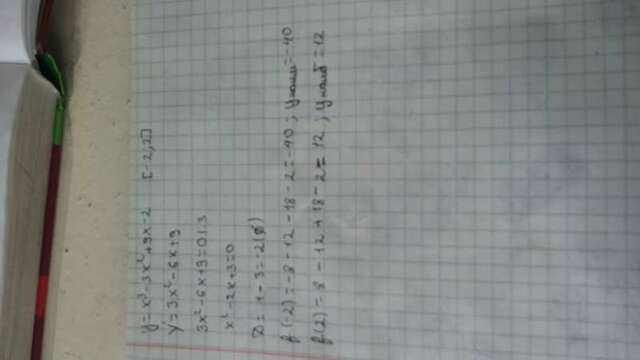 y=x³-3x²+9x-2 [-2;2]
y'=3x²-6x+9
3x²-6x+9=0|:3
x²-2x+3=0
D=1-3=-2(∅)
f(-2)=-8-12-18-2=-40; yнаим=-40
f(2)=8-12+18-2=12; yнаиб=12